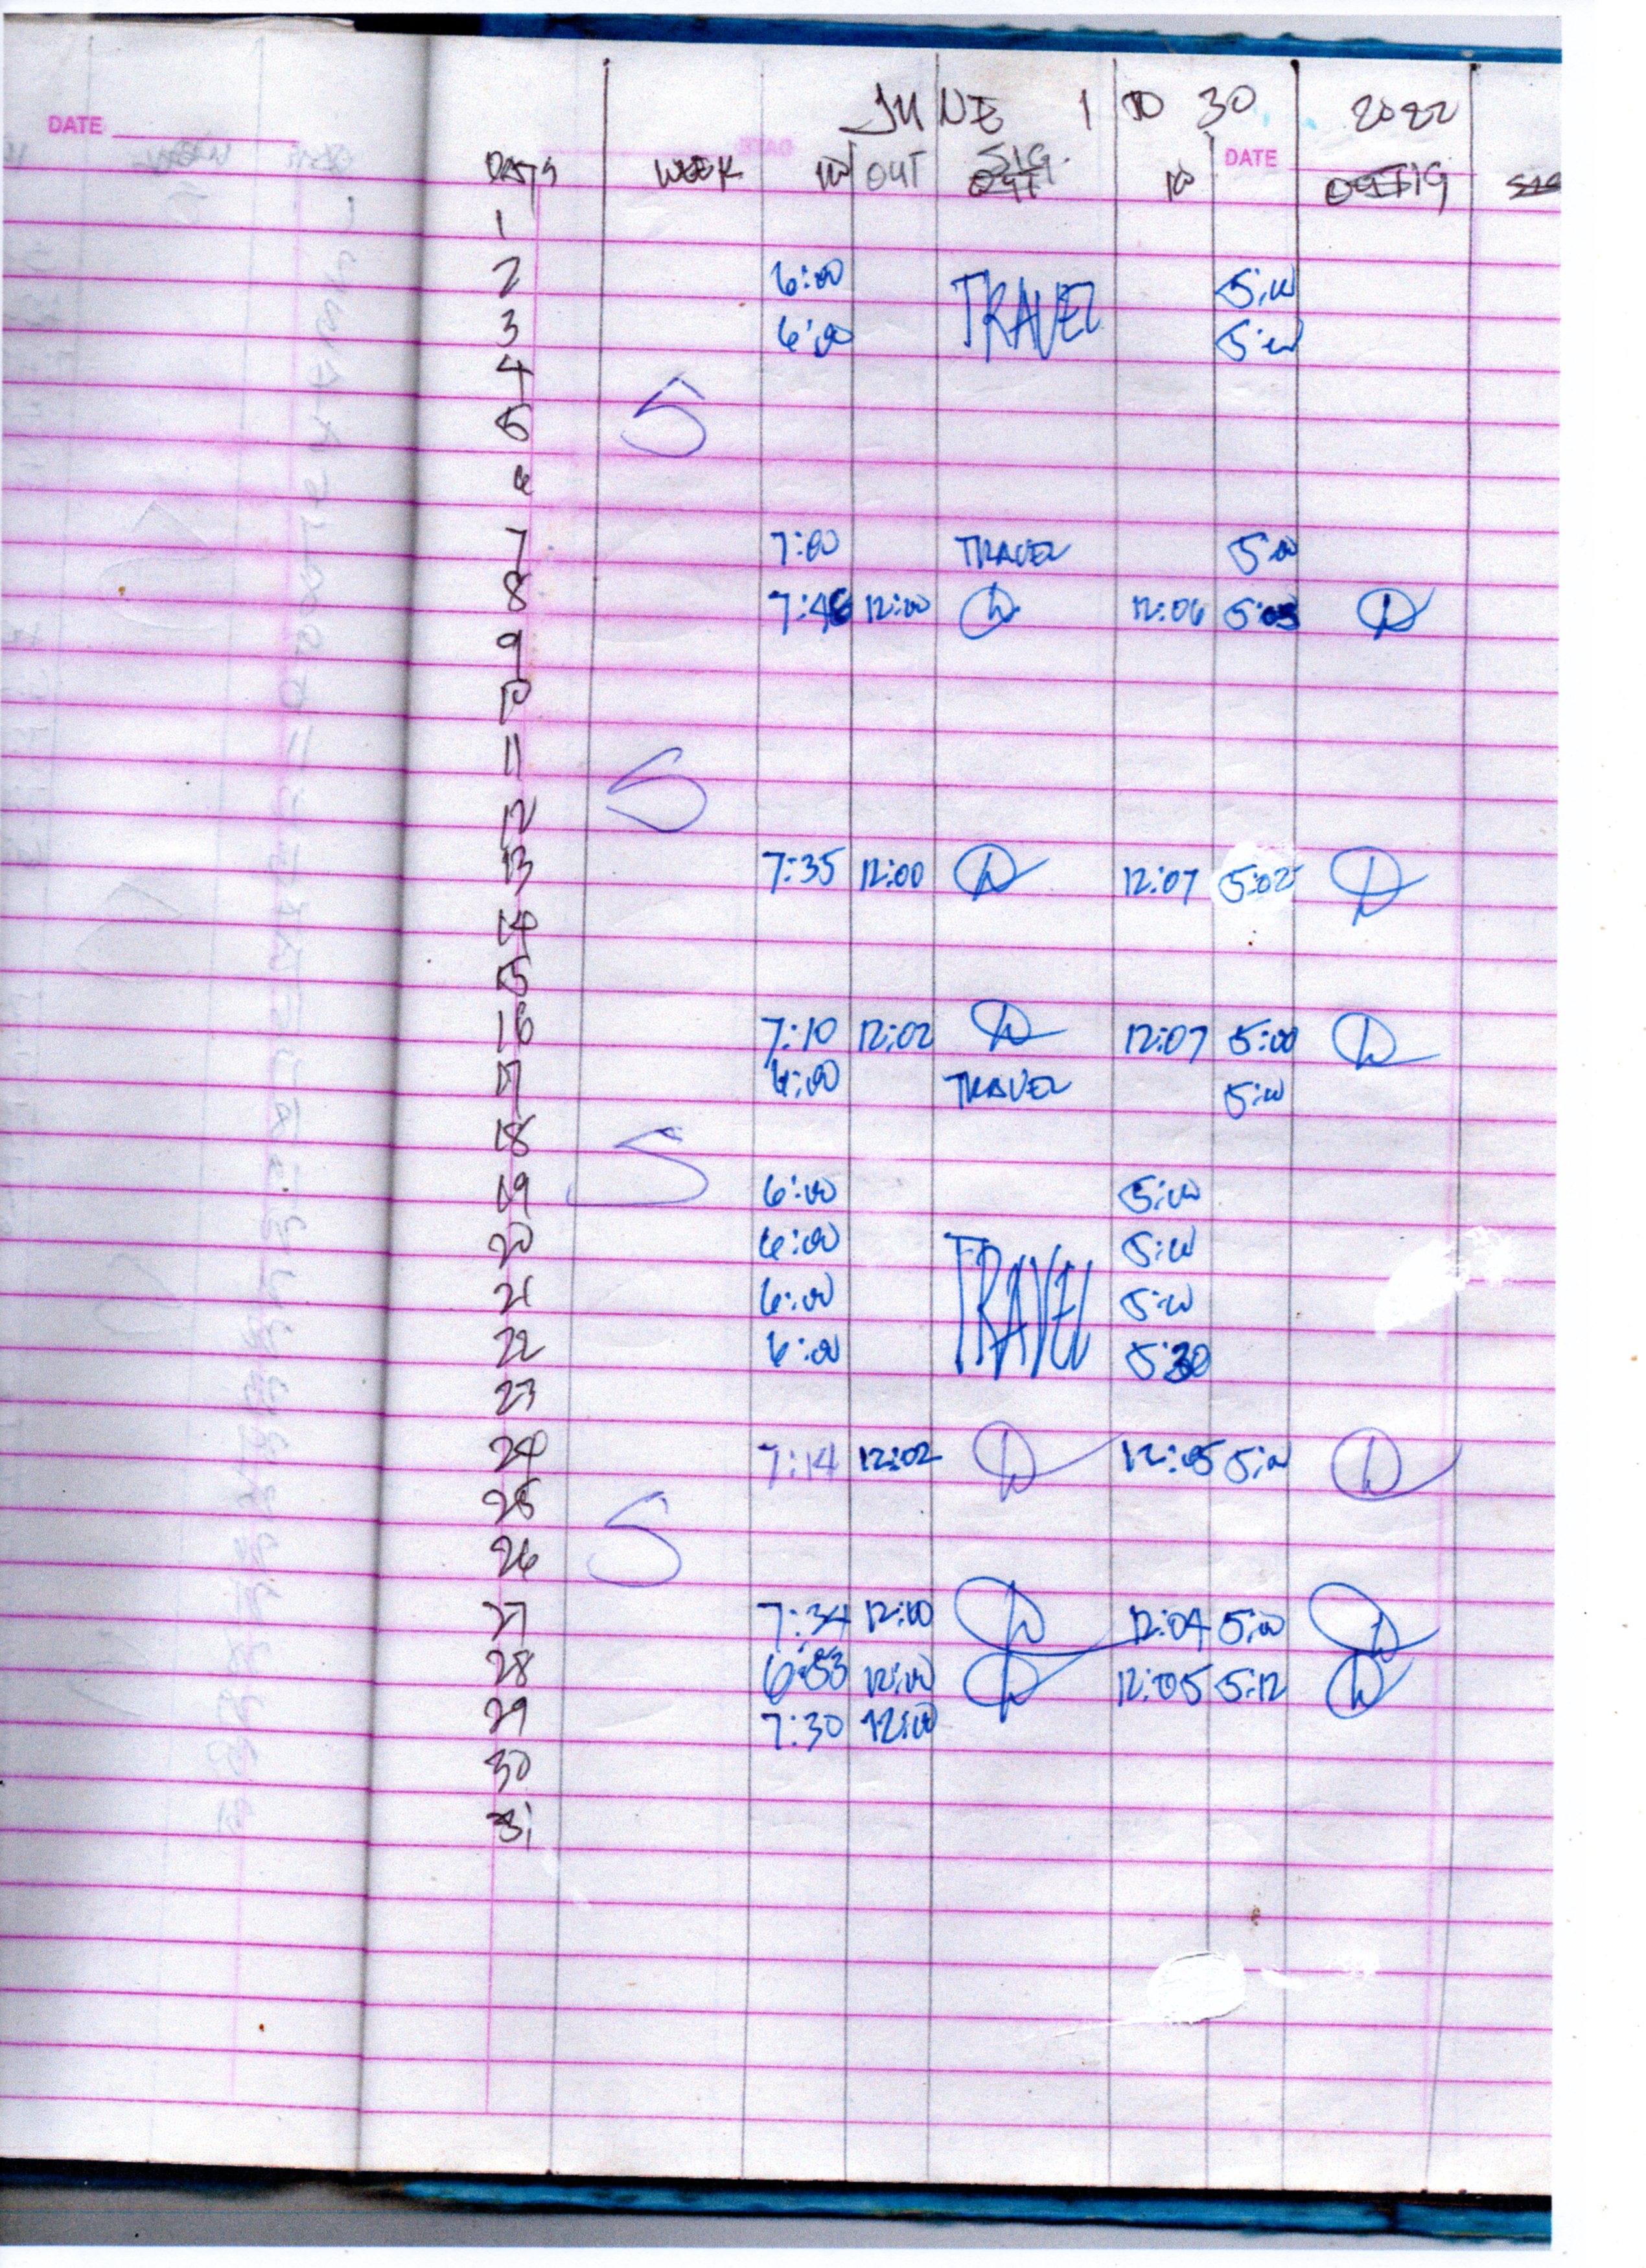 JUNE 1 TO 30 2022
DATE DATE
DAYS WEEK IN OUT SIG. OUT IN OUT SIG SIG
1
2 6:00 TRAVEL 5:00
3 6:00 5:00
4
5 S
6
7 7:00 TRAVEL 5:00
8 7:46 12:00 12:06 5:03
9
10
11
12 S
13 7:35 12:00 12:07 5:02
14
15
16 7:10 12:02 12:07 5:00
17 6:00 TRAVEL 5:00
18
19 S 6:00 5:00
20 6:00 TRAVEL 5:00
21 6:00 5:00
22 6:00 5:30
23
24 7:14 12:02 12:05 5:00
25
26 S
27 7:34 12:00 12:04 5:00
28 6:53 12:00 12:05 5:12
29 7:30 12:00
30
31